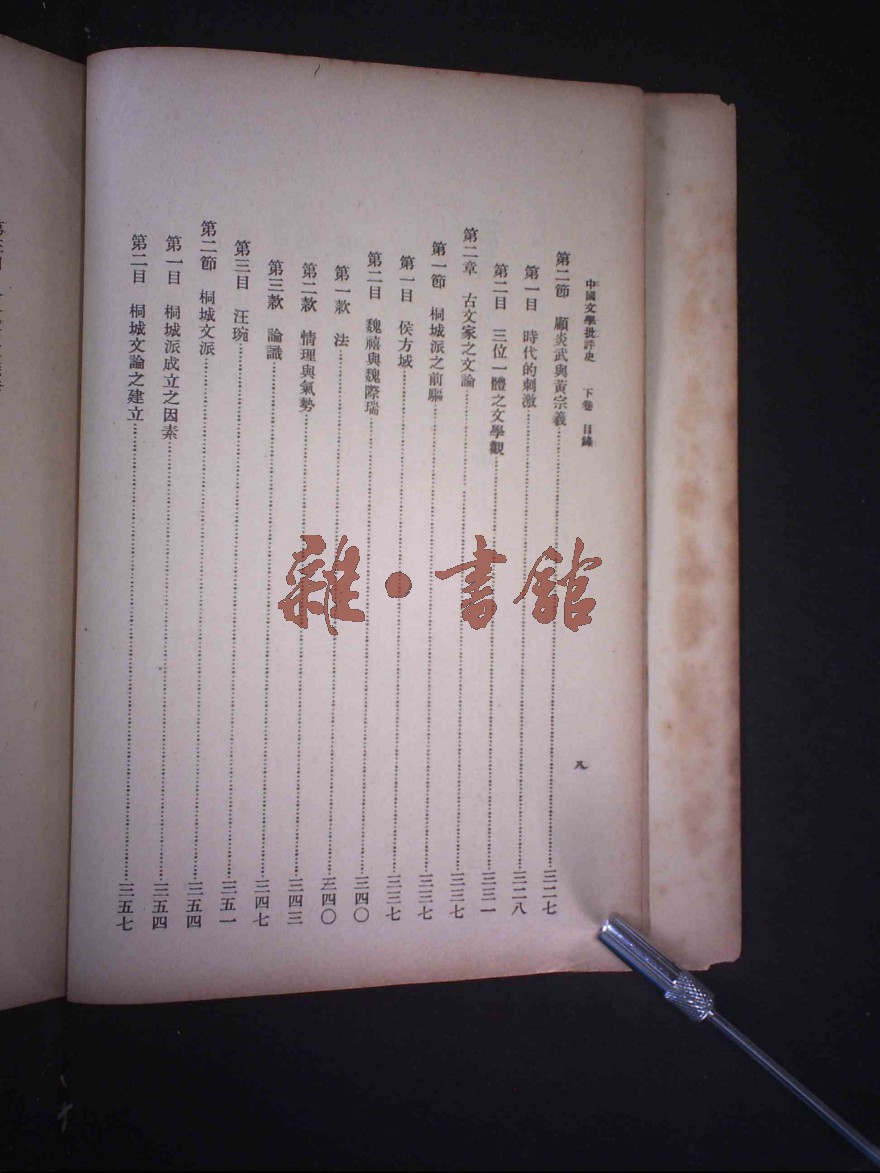 中國文學批評史 下卷 目錄
八
第二節 顧炎武與黃宗羲……三二七
第一目 時代的刺激……三二八
第二目 三位一體之文學觀……三三一
第二章 古文家之文論……三三七
第一節 桐城派之前驅……三三七
第一目 侯方域……三三七
第二目 魏禧與魏際瑞……三四〇
第一款 法……三四〇
第二款 情理與氣勢……三四三
第三款 論識……三四七
第三目 汪琬……三五一
第二節 桐城文派……三五四
第一目 桐城派成立之因素……三五四
第二目 桐城文論之建立……三五七
雜·書館